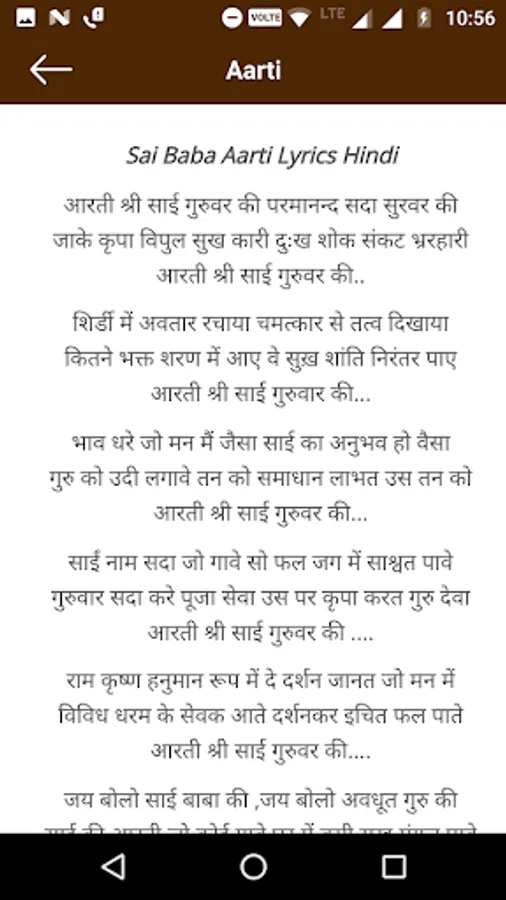 VOLTE LTE 10:56
Aarti
Sai Baba Aarti Lyrics Hindi
आरती श्री साई गुरुवर की परमानन्द सदा सुरवर की
जाके कृपा विपुल सुख कारी दुःख शोक संकट भ्ररहारी
आरती श्री साई गुरुवर की..
शिर्डी में अवतार रचाया चमत्कार से तत्व दिखाया
कितने भक्त शरण में आए वे सुख़ शांति निरंतर पाए
आरती श्री साई गुरुवार की...
भाव धरे जो मन मैं जैसा साई का अनुभव हो वैसा
गुरु को उदी लगावे तन को समाधान लाभत उस तन को
आरती श्री साई गुरुवर की...
साईं नाम सदा जो गावे सो फल जग में साश्वत पावे
गुरुवार सदा करे पूजा सेवा उस पर कृपा करत गुरु देवा
आरती श्री साई गुरुवर की ....
राम कृष्ण हनुमान रूप में दे दर्शन जानत जो मन में
विविध धरम के सेवक आते दर्शनकर इचित फल पाते
आरती श्री साई गुरुवर की....
जय बोलो साई बाबा की ,जय बोलो अवधूत गुरु की